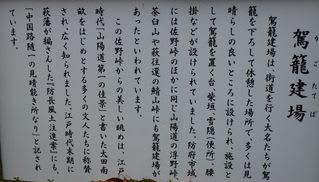 駕籠建場
かごたてば
駕籠建場は、街道を行く大名たちが駕
籠を下ろして休憩した場所で、多くは見
晴らしの良いところに設けられ、施設と
して駕籠を置く台、柴垣、雪隠(便所)、腰
掛などが設けられていました。防府市域
には佐野峠のほかに同じ山陽道の浮野峠、
茶臼山や萩往還の鯖山峠にも駕籠建場が
あったといわれています。
この佐野峠からの美しい眺めは、江戸
時代「山陽道第一の佳景」と書いた太田南
畝をはじめとする多くの文人たちに称賛
され広く知られました。江戸時代末期に
萩藩が編さんした『防長風土注進案』にも、
「中国路随一の見晴能き所なり」と記され
ています。